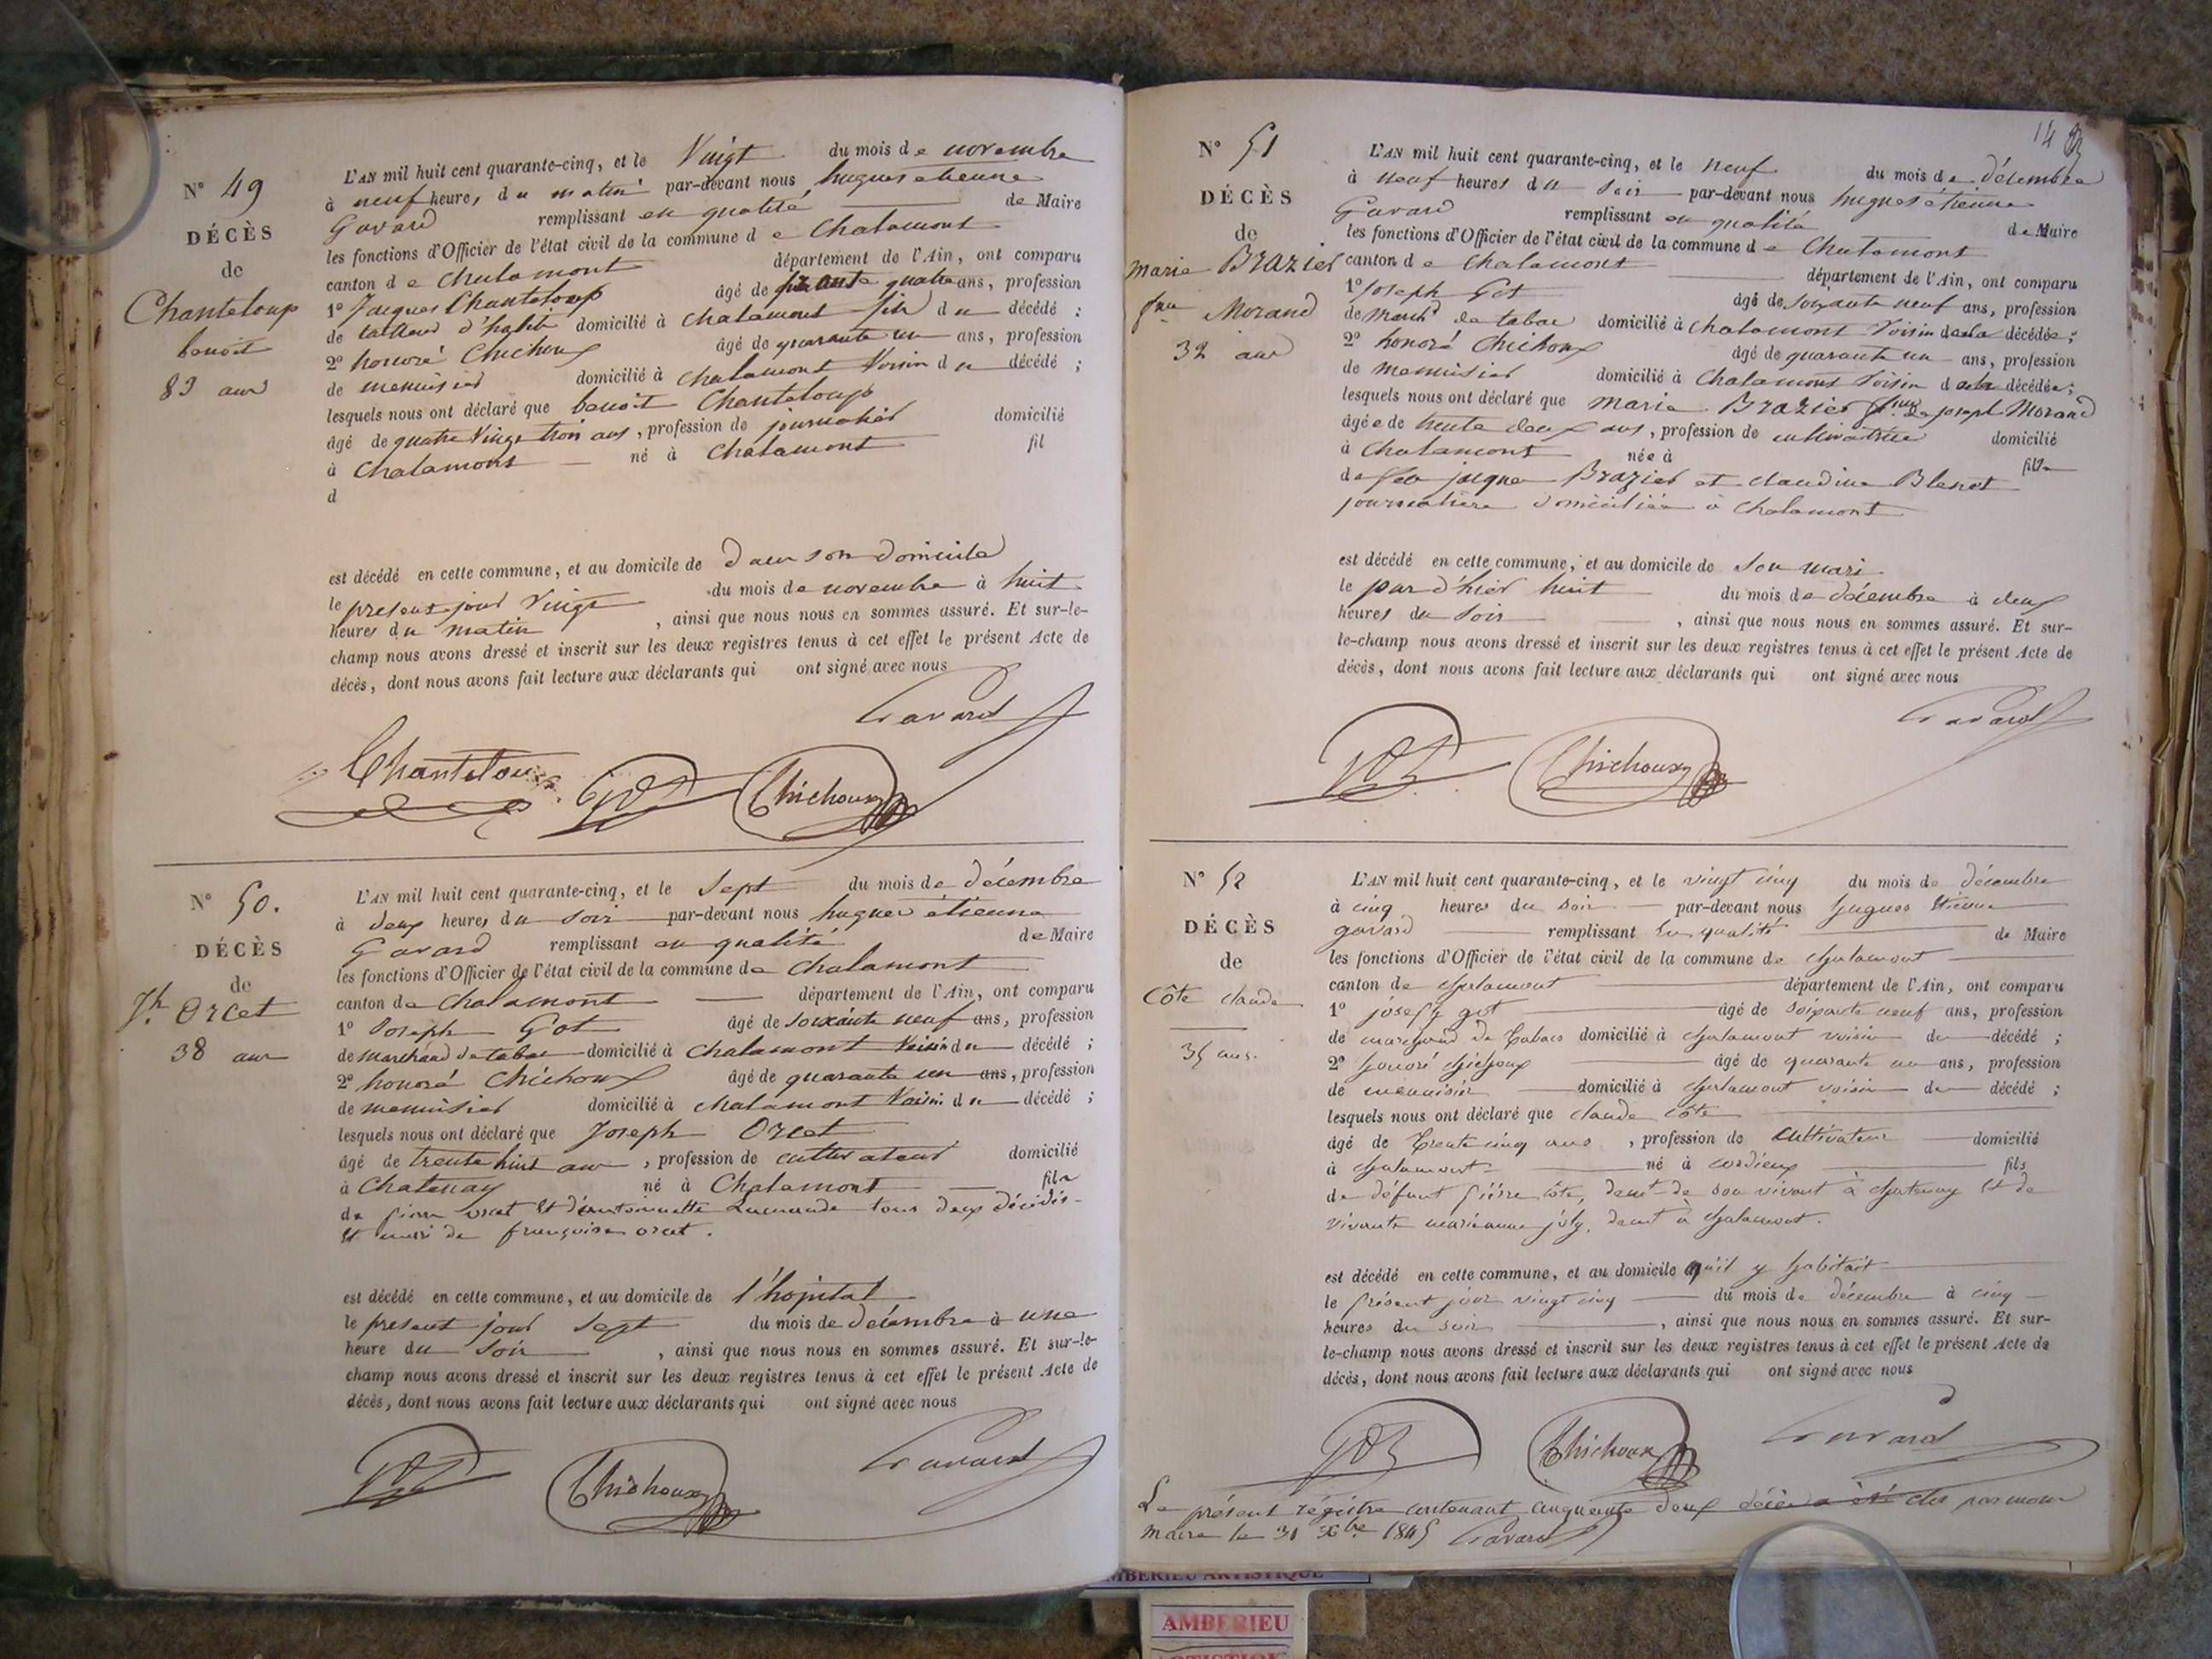 N° 49
DÉCÈS
de
Chanteloup
benoit
83 ans
L'AN mil huit cent quarante-cinq, et le Vingt du mois de novembre
à neuf heures, du matin par-devant nous hugues etienne
Gavard remplissant en qualité de Maire
les fonctions d'Officier de l'état civil de la commune de Chalamont
canton de Chalamont département de l'Ain, ont comparu
1° Jacques Chanteloup âgé de quatre ans, profession
de tailleur d'habit domicilié à Chalamont fils du décédé ;
2° honoré Chichoux âgé de quarante un ans, profession
de menuisier domicilié à Chalamont Voisin du décédé ;
lesquels nous ont déclaré que benoit Chanteloup
âgé de quatre Vingt trois ans, profession de journalier domicilié
à Chalamont né à Chalamont fil
d
est décédé en cette commune, et au domicile de dans son domicile
le present jour Vingt du mois de novembre à huit
heures du matin, ainsi que nous nous en sommes assuré. Et sur-le-
champ nous avons dressé et inscrit sur les deux registres tenus à cet effet le présent Acte de
décès, dont nous avons fait lecture aux déclarants qui ont signé avec nous
Gavard
Chanteloup Got Chichoux
N° 50.
DÉCÈS
de
Jh. Orcet
38 ans
L'AN mil huit cent quarante-cinq, et le Sept du mois de décembre
à deux heures du soir par-devant nous hugues étienne
Gavard remplissant en qualité de Maire
les fonctions d'Officier de l'état civil de la commune de Chalamont
canton de Chalamont département de l'Ain, ont comparu
1° Joseph Got âgé de soixante neuf ans, profession
de marchand de tabac domicilié à Chalamont Voisin du décédé ;
2° honoré Chichoux âgé de quarante un ans, profession
de menuisier domicilié à Chalamont Voisin du décédé ;
lesquels nous ont déclaré que Joseph Orcet
âgé de trente huit ans, profession de cultivateur domicilié
à Chatenay né à Chalamont fils
de pierre orcet et d'antoinette tous deux décédés
et mari de françoise orcet.
est décédé en cette commune, et au domicile de l'hôpital
le present jour Sept du mois de décembre à une
heure du Soir, ainsi que nous nous en sommes assuré. Et sur-le-
champ nous avons dressé et inscrit sur les deux registres tenus à cet effet le présent Acte de
décès, dont nous avons fait lecture aux déclarants qui ont signé avec nous
Got Chichoux Gavard
14
N° 51
DÉCÈS
de
marie Brazier
fme Morand
32 ans
L'AN mil huit cent quarante-cinq, et le neuf du mois de décembre
à neuf heures du Soir par-devant nous hugues étienne
Gavard remplissant en qualité de Maire
les fonctions d'Officier de l'état civil de la commune de Chalamont
canton de Chalamont département de l'Ain, ont comparu
1° Joseph Got âgé de soixante neuf ans, profession
de Marchd de tabac domicilié à Chalamont Voisin de la décédée ;
2° honoré Chichoux âgé de quarante un ans, profession
de menuisier domicilié à Chalamont Voisin de la décédée ;
lesquels nous ont déclaré que marie Brazier fme de joseph Morand
âgée de trente deux ans, profession de cultivatrice domicilié
à Chalamont née à fille
de feu jacque Brazier et claudine Blenet
journalière domiciliée à Chalamont
est décédé en cette commune, et au domicile de son mari
le jour d'hier huit du mois de décembre à deux
heures du Soir, ainsi que nous nous en sommes assuré. Et sur-
le-champ nous avons dressé et inscrit sur les deux registres tenus à cet effet le présent Acte de
décès, dont nous avons fait lecture aux déclarants qui ont signé avec nous
Gavard
Got Chichoux
N° 52
DÉCÈS
de
Côte claude
35 ans.
L'AN mil huit cent quarante-cinq, et le vingt cinq du mois de décembre
à cinq heures du soir par-devant nous hugues étienne
gavard remplissant en qualité de Maire
les fonctions d'Officier de l'état civil de la commune de chalamont
canton de chalamont département de l'Ain, ont comparu
1° joseph got âgé de soixante neuf ans, profession
de marchand de tabacs domicilié à chalamont voisin du décédé ;
2° honoré chichoux âgé de quarante un ans, profession
de menuisier domicilié à chalamont voisin du décédé ;
lesquels nous ont déclaré que claude côte
âgé de trente cinq ans, profession de cultivateur domicilié
à chalamont né à cordieux fils
de défunt pierre côte, demt de son vivant à chatenay et de
vivante marianne joly, demt à chalamont.
est décédé en cette commune, et au domicile qu'il y habitait
le présent jour vingt cinq du mois de décembre à cinq
heures du soir, ainsi que nous nous en sommes assuré. Et sur-
le-champ nous avons dressé et inscrit sur les deux registres tenus à cet effet le présent Acte de
décès, dont nous avons fait lecture aux déclarants qui ont signé avec nous
Got Chichoux Gavard
Le présent régistre contenant cinquante deux décès a été clos par nous
maire le 31 Xbre 1845 Gavard
AMBERIEU ARTISTIQUE
AMBERIEU
ARTISTIQUE